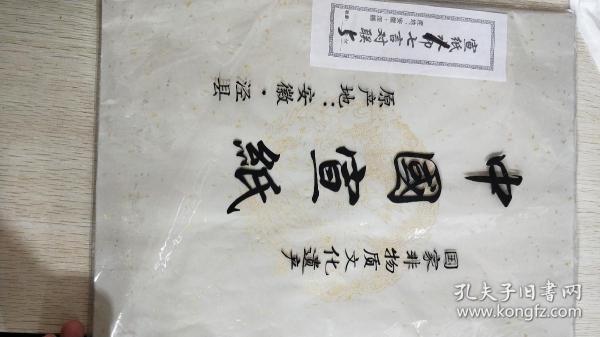 宣纸
七言对联
原产地：安徽·泾县
中國宣紙
国家非物质文化遗产
孔夫子旧书网
www.kongfz.com